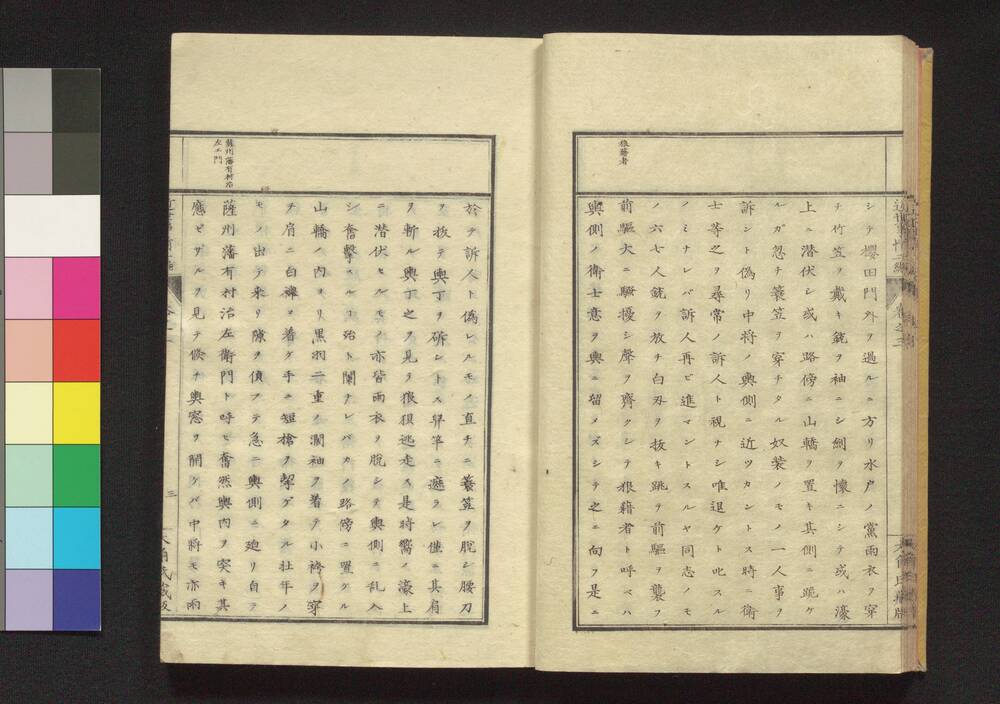 狼藉者
シテ櫻田門外ヲ過ルニ方リ水户ノ黨雨衣ヲ穿
チ竹笠ヲ戴キ銃ヲ袖ニシ劍ヲ懐ニシテ或ハ濠
上ニ潜伏シ或ハ路傍ニ山轎ヲ置キ其側ニ跪ケ
ルガ忽チ簑笠ヲ穿チタル奴装ノモノ一人事ヲ
訴ント偽リ中将ノ輿側ニ近ツカントス時ニ衛
士等之ヲ尋常ノ訴人ト視ナシ唯退ケト叱スル
ノミナレバ訴人再ビ進マントスルヤ同志ノモ
ノ六七人銃ヲ放チ白刄ヲ抜キ跳テ前驅ヲ襲フ
前驅大ニ騒擾シ聲ヲ齊クシテ狼藉者ト呼ベハ
輿側ノ衛士意ヲ輿ニ留メズシテ之ニ向フ是ニ
薩州藩有村治
左エ門
於テ訴人ト偽レルモノ直チニ簑笠ヲ脱シ腰刀
ヲ抜テ輿丁ヲ斫ントス舁竿ニ遮ラレ僅ニ其肩
ヲ斬ル輿丁之ヲ見テ狼狽逃走ス是時嚮ノ濠上
ニ潜伏セルモノ亦皆雨衣ヲ脱シテ輿側ニ乱入
シ奮擊スルヿ殆ト闌ナレバカノ路傍ニ置ケル
山轎ノ内ヨリ黒羽二重ノ濶袖ヲ着テ小袴ヲ穿
チ肩ニ白襷ヲ着ケ手ニ短槍ヲ挈ゲタル壮年ノ
モノ出テ来リ隙ヲ偵フテ急ニ輿側ニ廹リ自テ
薩州藩有村治左衛門ト呼ヒ奮然輿内ヲ突キ其
應ビザルヲ見テ倐チ輿窓ヲ開ケバ中将モ亦雨
三